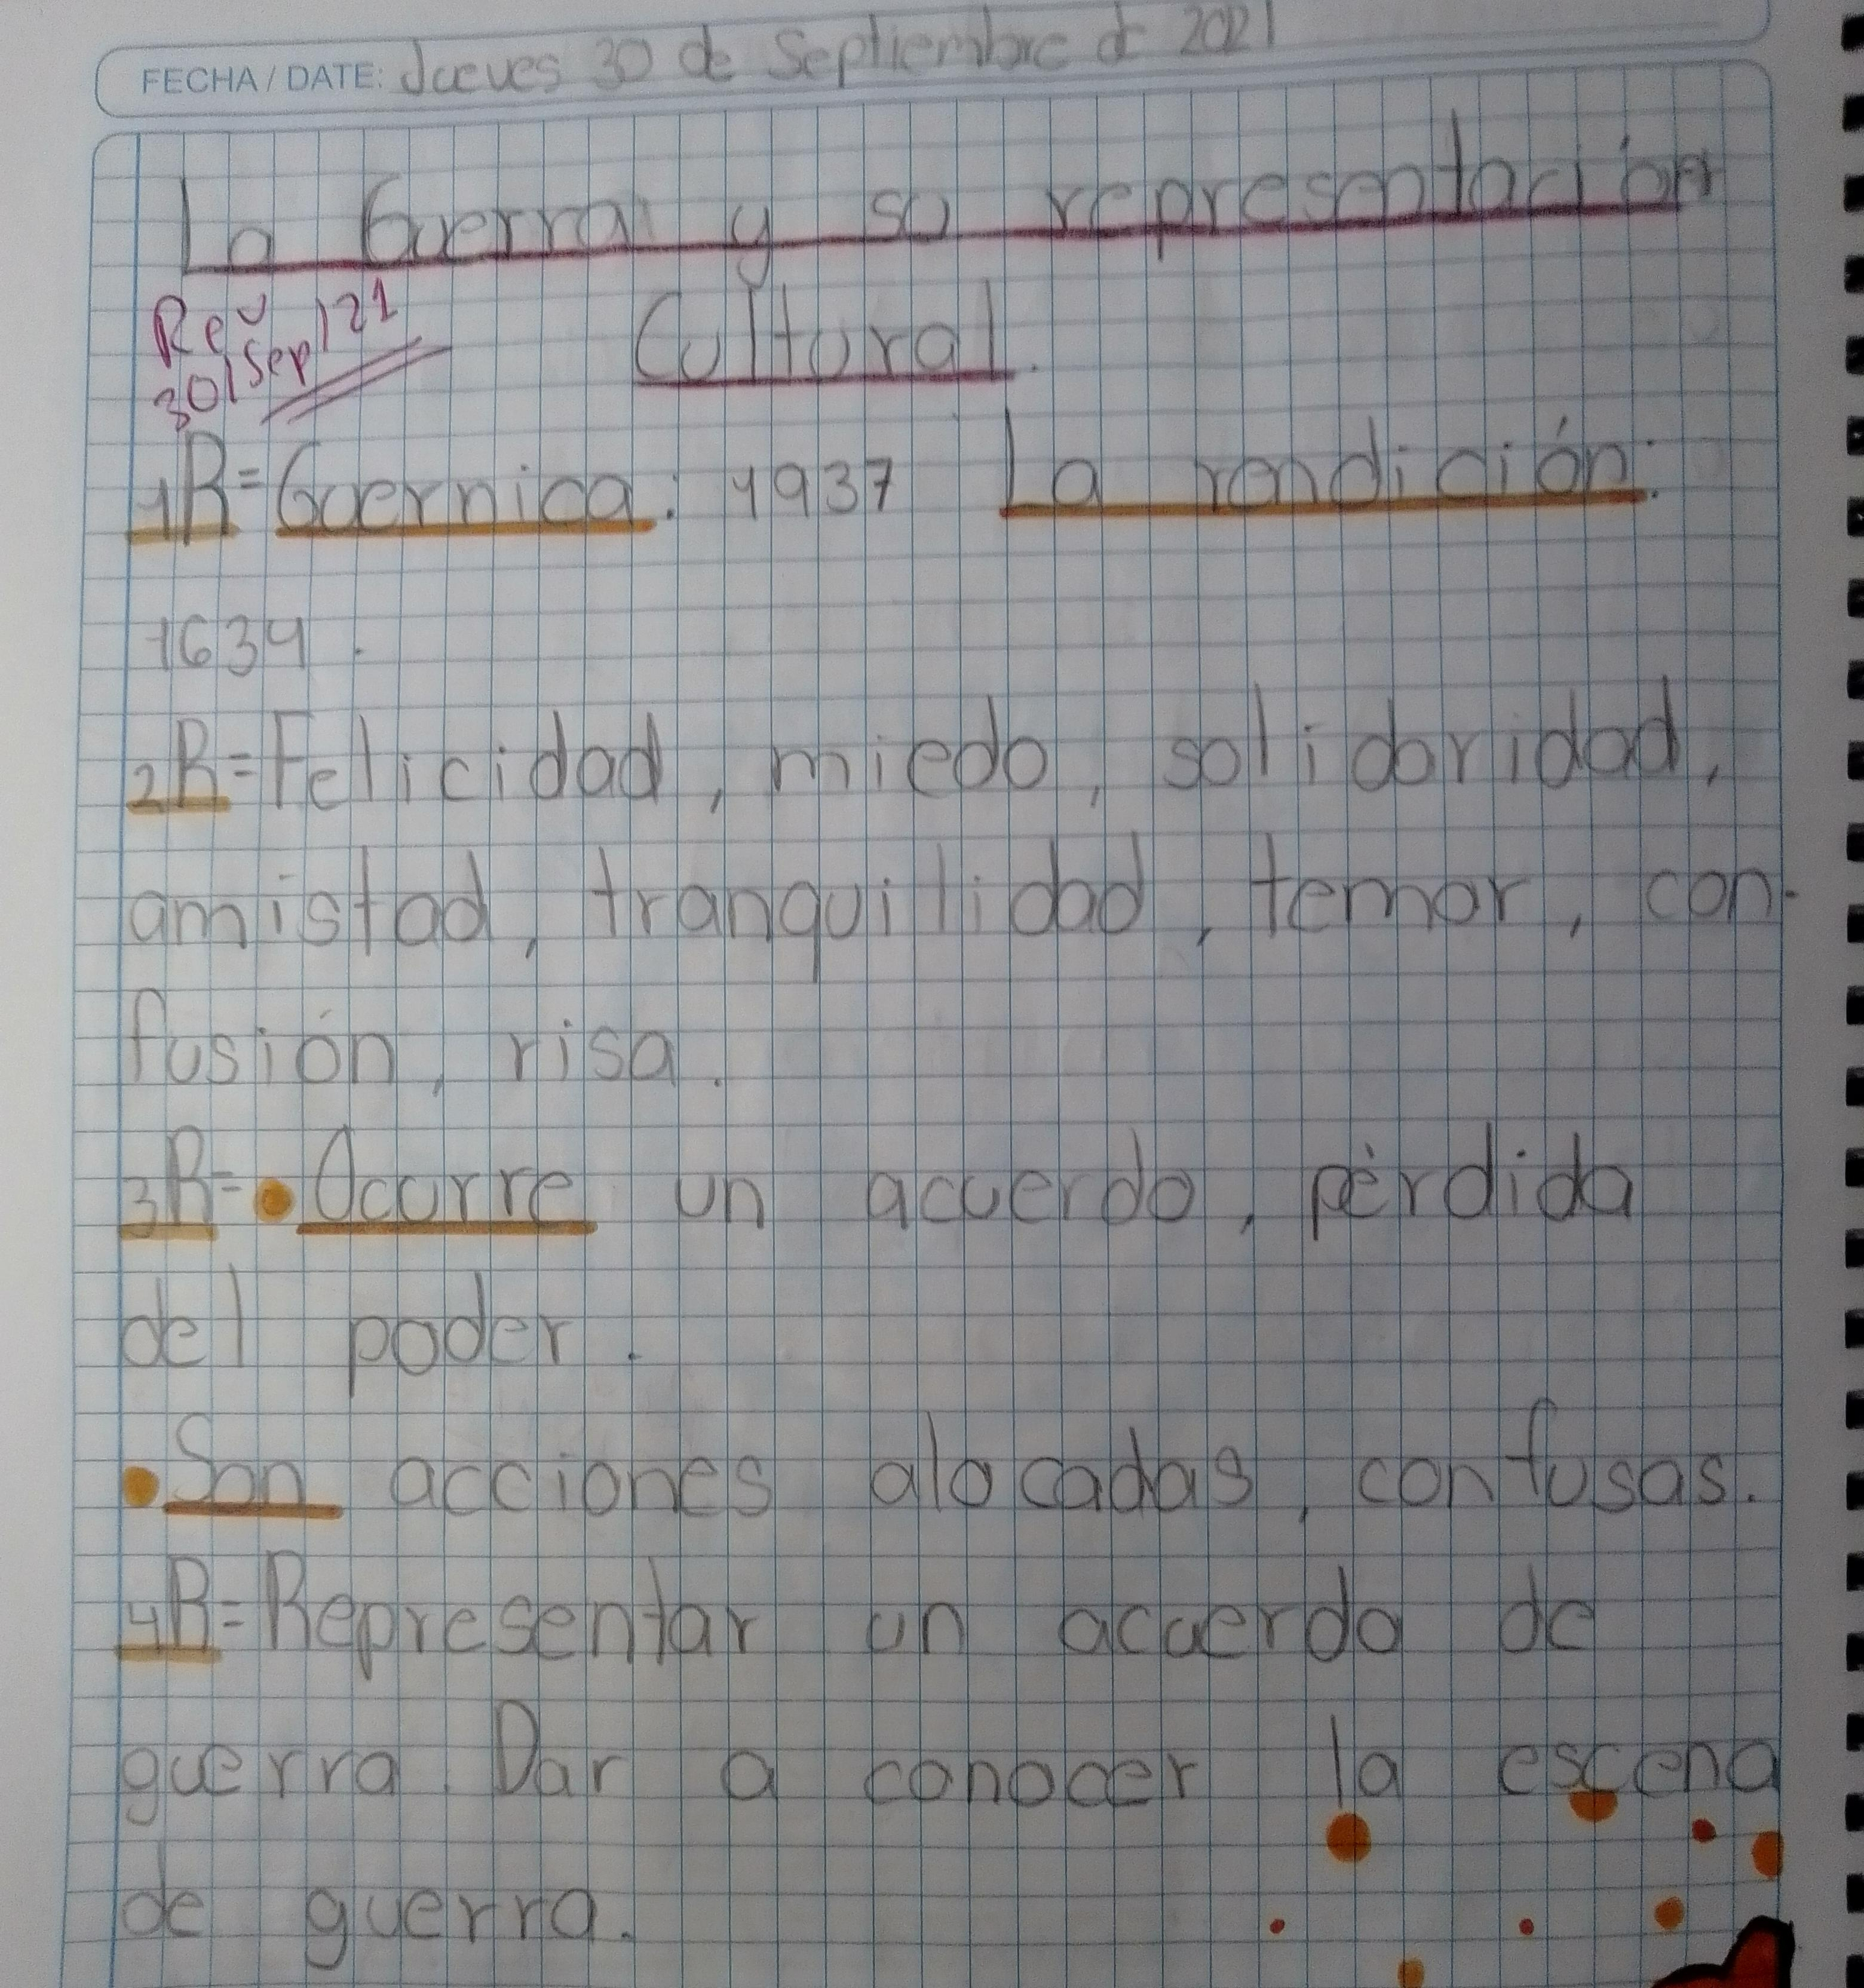 FECHA/DATE: Jueves 30 de Septiembre de 2021
La Guerra y su representación
Cultural.
Rev
30/Sep/21
1R=Guernica: 1937 La rendición:
1634.
2R=Felicidad, miedo, solidaridad,
amistad, tranquilidad, temor, con-
fusión, risa.
3R=•Ocurre un acuerdo, pérdida
del poder.
•Son acciones alocadas, confusas.
4R=Representar un acuerdo de
guerra. Dar a conocer la escena
de guerra.